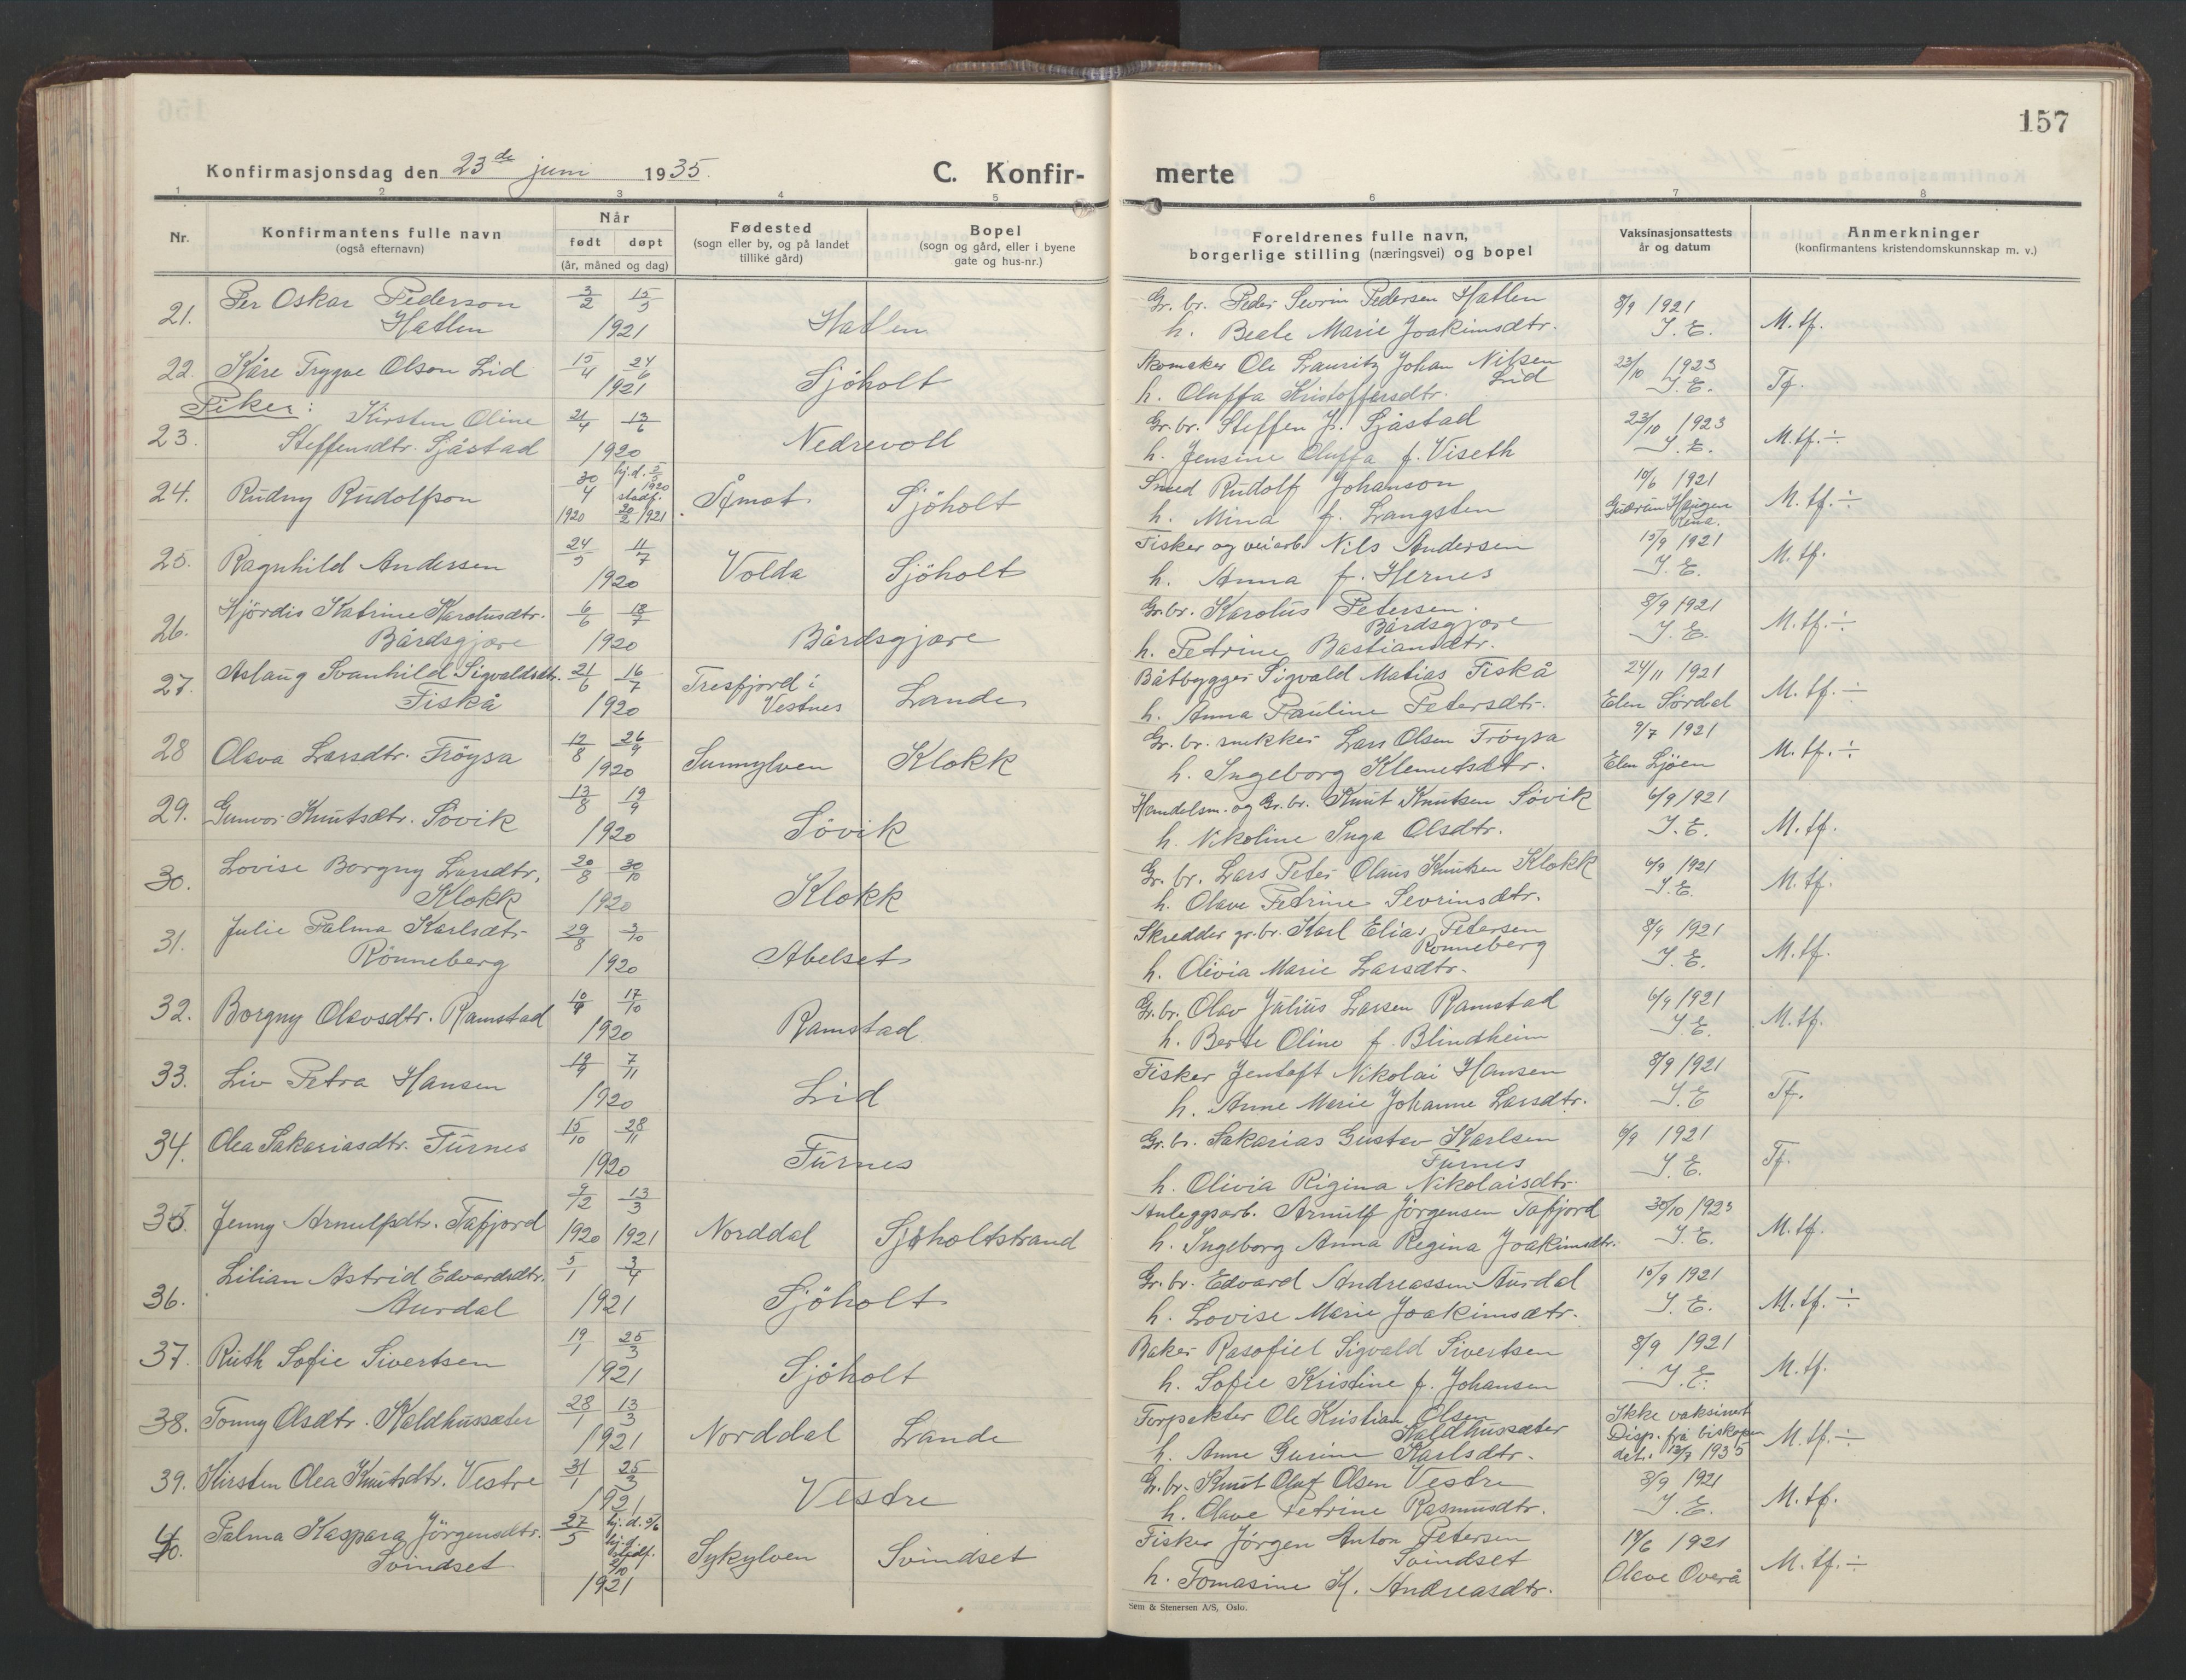 157
Konfirmasjonsdag den 23de juni 1935.
C. Konfir-
merte
1 2 3 4 5 6 7 8
Nr.
Konfirmantens fulle navn
(også efternavn)
Når
født døpt
(år, måned og dag)
Fødested
(sogn eller by, og på landet
tillike gård)
Bopel
(sogn og gård, eller i byene
gate og hus-nr.)
Foreldrenes fulle navn,
borgerlige stilling (næringsvei) og bopel
Vaksinasjonsattests
år og datum
Anmerkninger
(konfirmantens kristendomskunnskap m. v.)
21. Per Oskar Pederson 3/2 15/5 Gr. br. Peder Sevrin Pedersen Hatlen 8/9 1921
Hatlen 1921 Hatlen h. Beate Marie Joakimsdtr. J. E. M. tf.
22. Kåre Trygve Olson Lid 15/4 24/6 Skomaker Ole Lauritz Johan Nilsen 23/10 1923
1921 Sjöholt Lid
h. Oluffa Kristoffersdtr. J. E. Tf.
Piker:
23. Kirsten Oline 21/4 13/6 Gr. br. Steffen J. Sjåstad 23/10 1923
Steffensdtr. Sjåstad 1920 Nedrevoll h. Jensine Oluffa f. Viseth J. E. M. tf. ÷
24. Rudny Rudolfson 30/4 hj. d. 5/5 1920 Åmot Sjöholt Smed Rudolf Johanson 10/6 1921
1920 stadf. 20/2 1921 h. Mina f. Langsten Gudrun Haugen Rena. M. tf. ÷
25. Ragnhild Andersen 24/5 11/7 Volda Sjöholt Fisker og veiarb. Nils Andersen 15/9 1921
1920 h. Anna f. Hernes J. E. M. tf.
26. Hjördis Katrine Karolusdtr. 6/6 18/7 Gr. br. Karolus Petersen 8/9 1921
Bårdsgjære 1920 Bårdsgjære Bårdsgjære J. E. M. tf. ÷
h. Petrine Bastiansdtr.
27. Aslaug Svanhild Sigvaldsdtr. 21/6 16/7 Tresfjord i Båtbygger Sigvald Matias Fiskå 24/11 1921
Fiskå 1920 Vestnes Lande h. Anna Pauline Petersdtr. Elen Sördal M. tf. ÷
28 Olava Larsdtr. Fröysa 12/8 26/9 Sunnylven Klokk Gr. br. snekker Lars Olsen Fröysa 9/7 1921
1920 h. Ingeborg Klemetsdtr. Elen Ljöen M. tf. ÷
29. Gunvor Knutsdtr. Sövik 13/8 19/9 Handelsm. og Gr. br. Knut Knutsen Sövik 6/9 1921
1920 Sövik h. Nikoline Inga Olsdtr. J. E. M. tf.
30. Lovise Borgny Larsdtr. 20/8 30/10 Gr. br. Lars Peter Olaus Knutsen Klokk 6/9 1921
Klokk 1920 Klokk h. Olave Petrine Sevrinsdtr. J. E. M. tf.
31. Julie Palma Karlsdtr. 29/8 3/10 Skredder gr. br. Karl Elias Petersen 8/9 1921
Rönneberg 1920 Abelset Rönneberg J. E. M. tf.
h. Olivia Marie Larsdtr.
32. Borgny Olavsdtr. Ramstad 10/9 17/10 Gr. br. Olav Julius Larsen Ramstad 6/9 1921
1920 Ramstad h. Berte Oline f. Blindheim J. E. M. tf.
33. Liv Petra Hansen 19/9 7/11 Fisker Jentoft Nikolai Hansen 8/9 1921
1920 Lid h. Anne Marie Johanne Larsdtr. J. E Tf.
34. Olea Sakariasdtr. Furnes 15/10 28/11 Gr. br. Sakarias Gustav Karlsen 6/9 1921
1920 Furnes Furnes J. E. Tf.
h. Olivia Rigina Nikolaisdtr.
35. Jenny Arnulfsdtr. Tafjord 9/12 13/3 Anleggsarb. Arnulf Jörgensen Tafjord 30/10 1923
1920 1921 Norddal Sjöholtstrand h. Ingeborg Anna Regina Joakimsdtr. J. E. M. tf.
36. Lilian Astrid Edvardsdtr. 5/1 3/4 Gr. br. Edvard Andreassen Aurdal 15/9 1921
Aurdal 1921 Sjöholt h. Lovise Marie Joakimsdtr. J. E. M. tf. ÷
37. Ruth Sofie Sivertsen 19/1 25/3 Baker Rasofiel Sigvald Sivertsen 8/9 1921
1921 Sjöholt h. Sofie Kristine f. Johansen J. E. M. tf.
38. Tonny Olsdtr. Kaldhussæter 28/1 13/3 Forpakter Ole Kristian Olsen Ikke vaksinert
1921 Norddal Lande Kaldhussæter Disp. frå biskopen
h. Anne Gurine Karlsdtr. dat. 13/7 1935 M. tf. ÷
39. Kirsten Olea Knutsdtr. Vestre 31/1 25/3 Gr. br. Knut Oluf Olsen Vestre 8/9 1921
1921 Vestre h. Olave Petrine Rasmusdtr. J. E. M. tf.
40. Palma Kaspara Jörgensdtr. 27/5 hj. d. 5/6 Fisker Jörgen Anton Petersen 19/6 1921
Svindset stadf. 2/10 Sykylven Svindset Svindset Olave Overå M. tf. ÷
1921 h. Tomasine K. Andreasdtr.
Sem & Stenersen A/S, Oslo.